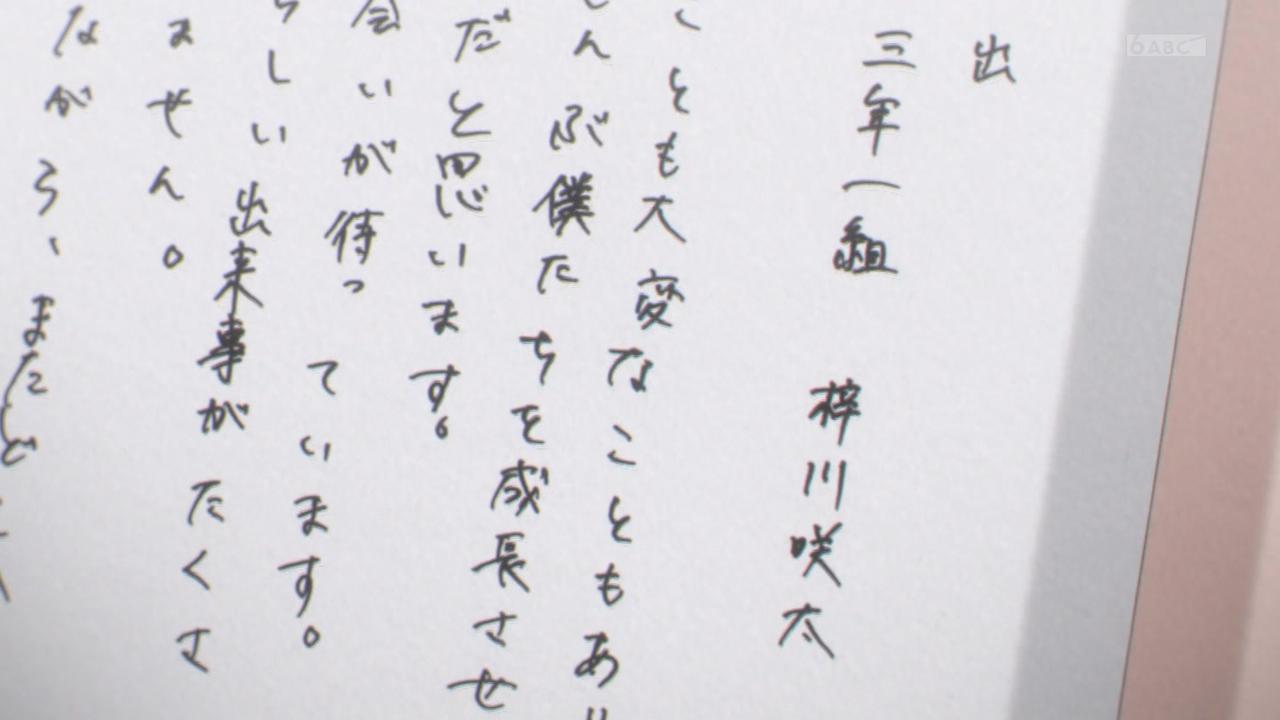 出
三年一組　梓川咲太
とも大変なこともあ
ぶ僕たちを成長させ
だと思います。
会いが待っています。
しい出来事がたくさ
ません。
ながら、また
6 ABC